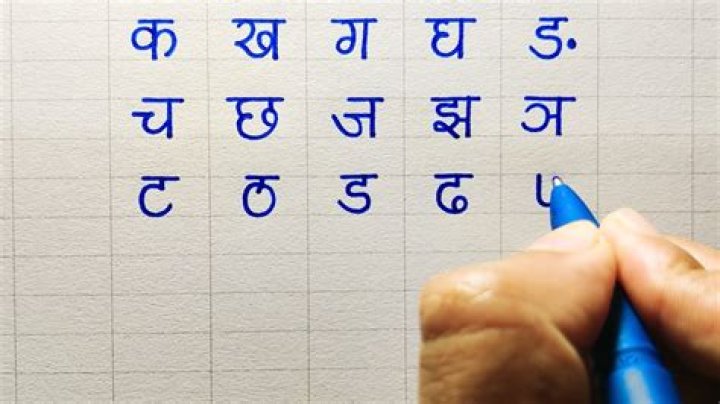 क ख ग घ ङ
च छ ज झ ञ
ट ठ ड ढ